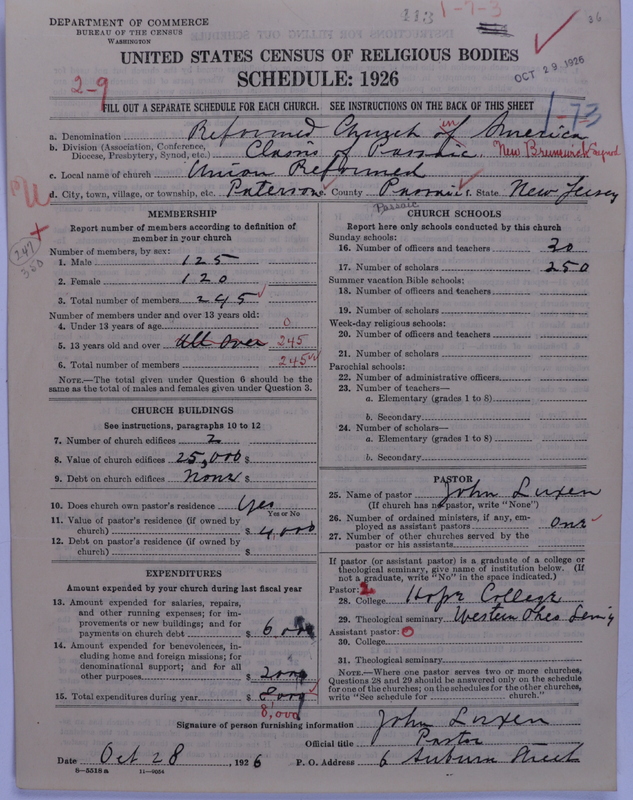 DEPARTMENT OF COMMERCE
BUREAU OF THE CENSUS
WASHINGTON
113 1-7-3
36
OCT 29 1926
UNITED STATES CENSUS OF RELIGIOUS BODIES
SCHEDULE: 1926
2-9
FILL OUT A SEPARATE SCHEDULE FOR EACH CHURCH. SEE INSTRUCTIONS ON THE BACK OF THIS SHEET
1-73
a. Denomination Reformed Church in of America
b. Division (Association, Conference, Diocese, Presbytery, Synod, etc.) Classis of Passaic. New Brunswick Synod
c. Local name of church Union Reformed
d. City, town, village, or township, etc. Paterson e. County Passaic f. State New Jersey
Passaic
MEMBERSHIP
Report number of members according to definition of
member in your church
247
Number of members, by sex:
1. Male 125
2. Female 120
3. Total number of members 245
Number of members under and over 13 years old:
4. Under 13 years of age 0
5. 13 years old and over All Over 245
6. Total number of members 245
NOTE.—The total given under Question 6 should be
same as the total of males and females given under Question 3.
CHURCH BUILDINGS
See instructions, paragraphs 10 to 12
7. Number of church edifices 2
8. Value of church edifices 25,000 $
9. Debt on church edifices None $
10. Does church own pastor's residence Yes
Yes or No
11. Value of pastor's residence (if owned by
church) $ 4,000
12. Debt on pastor's residence (if owned by
church) $
EXPENDITURES
Amount expended by your church during last fiscal year
13. Amount expended for salaries, repairs,
and other running expenses; for im-
provements or new buildings; and for
payments on church debt $ 6000
14. Amount expended for benevolences, in-
cluding home and foreign missions; for
denominational support; and for all
other purposes $ 2000
15. Total expenditures during year $ 8000
8,000
CHURCH SCHOOLS
Report here only schools conducted by this church
Sunday schools:
16. Number of officers and teachers 30
17. Number of scholars 250
Summer vacation Bible schools:
18. Number of officers and teachers
19. Number of scholars
Week-day religious schools:
20. Number of officers and teachers
21. Number of scholars
Parochial schools:
22. Number of administrative officers
23. Number of teachers—
a. Elementary (grades 1 to 8)
b. Secondary
24. Number of scholars—
a. Elementary (grades 1 to 8)
b. Secondary
PASTOR
25. Name of pastor John Luxen
(If church has no pastor, write "None")
26. Number of ordained ministers, if any, em-
ployed as assistant pastors One
27. Number of other churches served by the
pastor or his assistants
If pastor (or assistant pastor) is a graduate of a college or
theological seminary, give name of institution below. (If
not a graduate, write "No" in the space indicated.)
Pastor: 2
28. College Hope College
29. Theological seminary Western Theo Seminy
Assistant pastor: 0
30. College
31. Theological seminary
NOTE.—Where one pastor serves two or more churches,
Questions 28 and 29 should be answered only on the schedule
for one of the churches; on the schedules for the other churches,
write "See schedule for church."
Signature of person furnishing information John Luxen
Official title Pastor
Date Oct 28, 1926 P. O. Address 6 Auburn Street
8—5518 a 11—9054